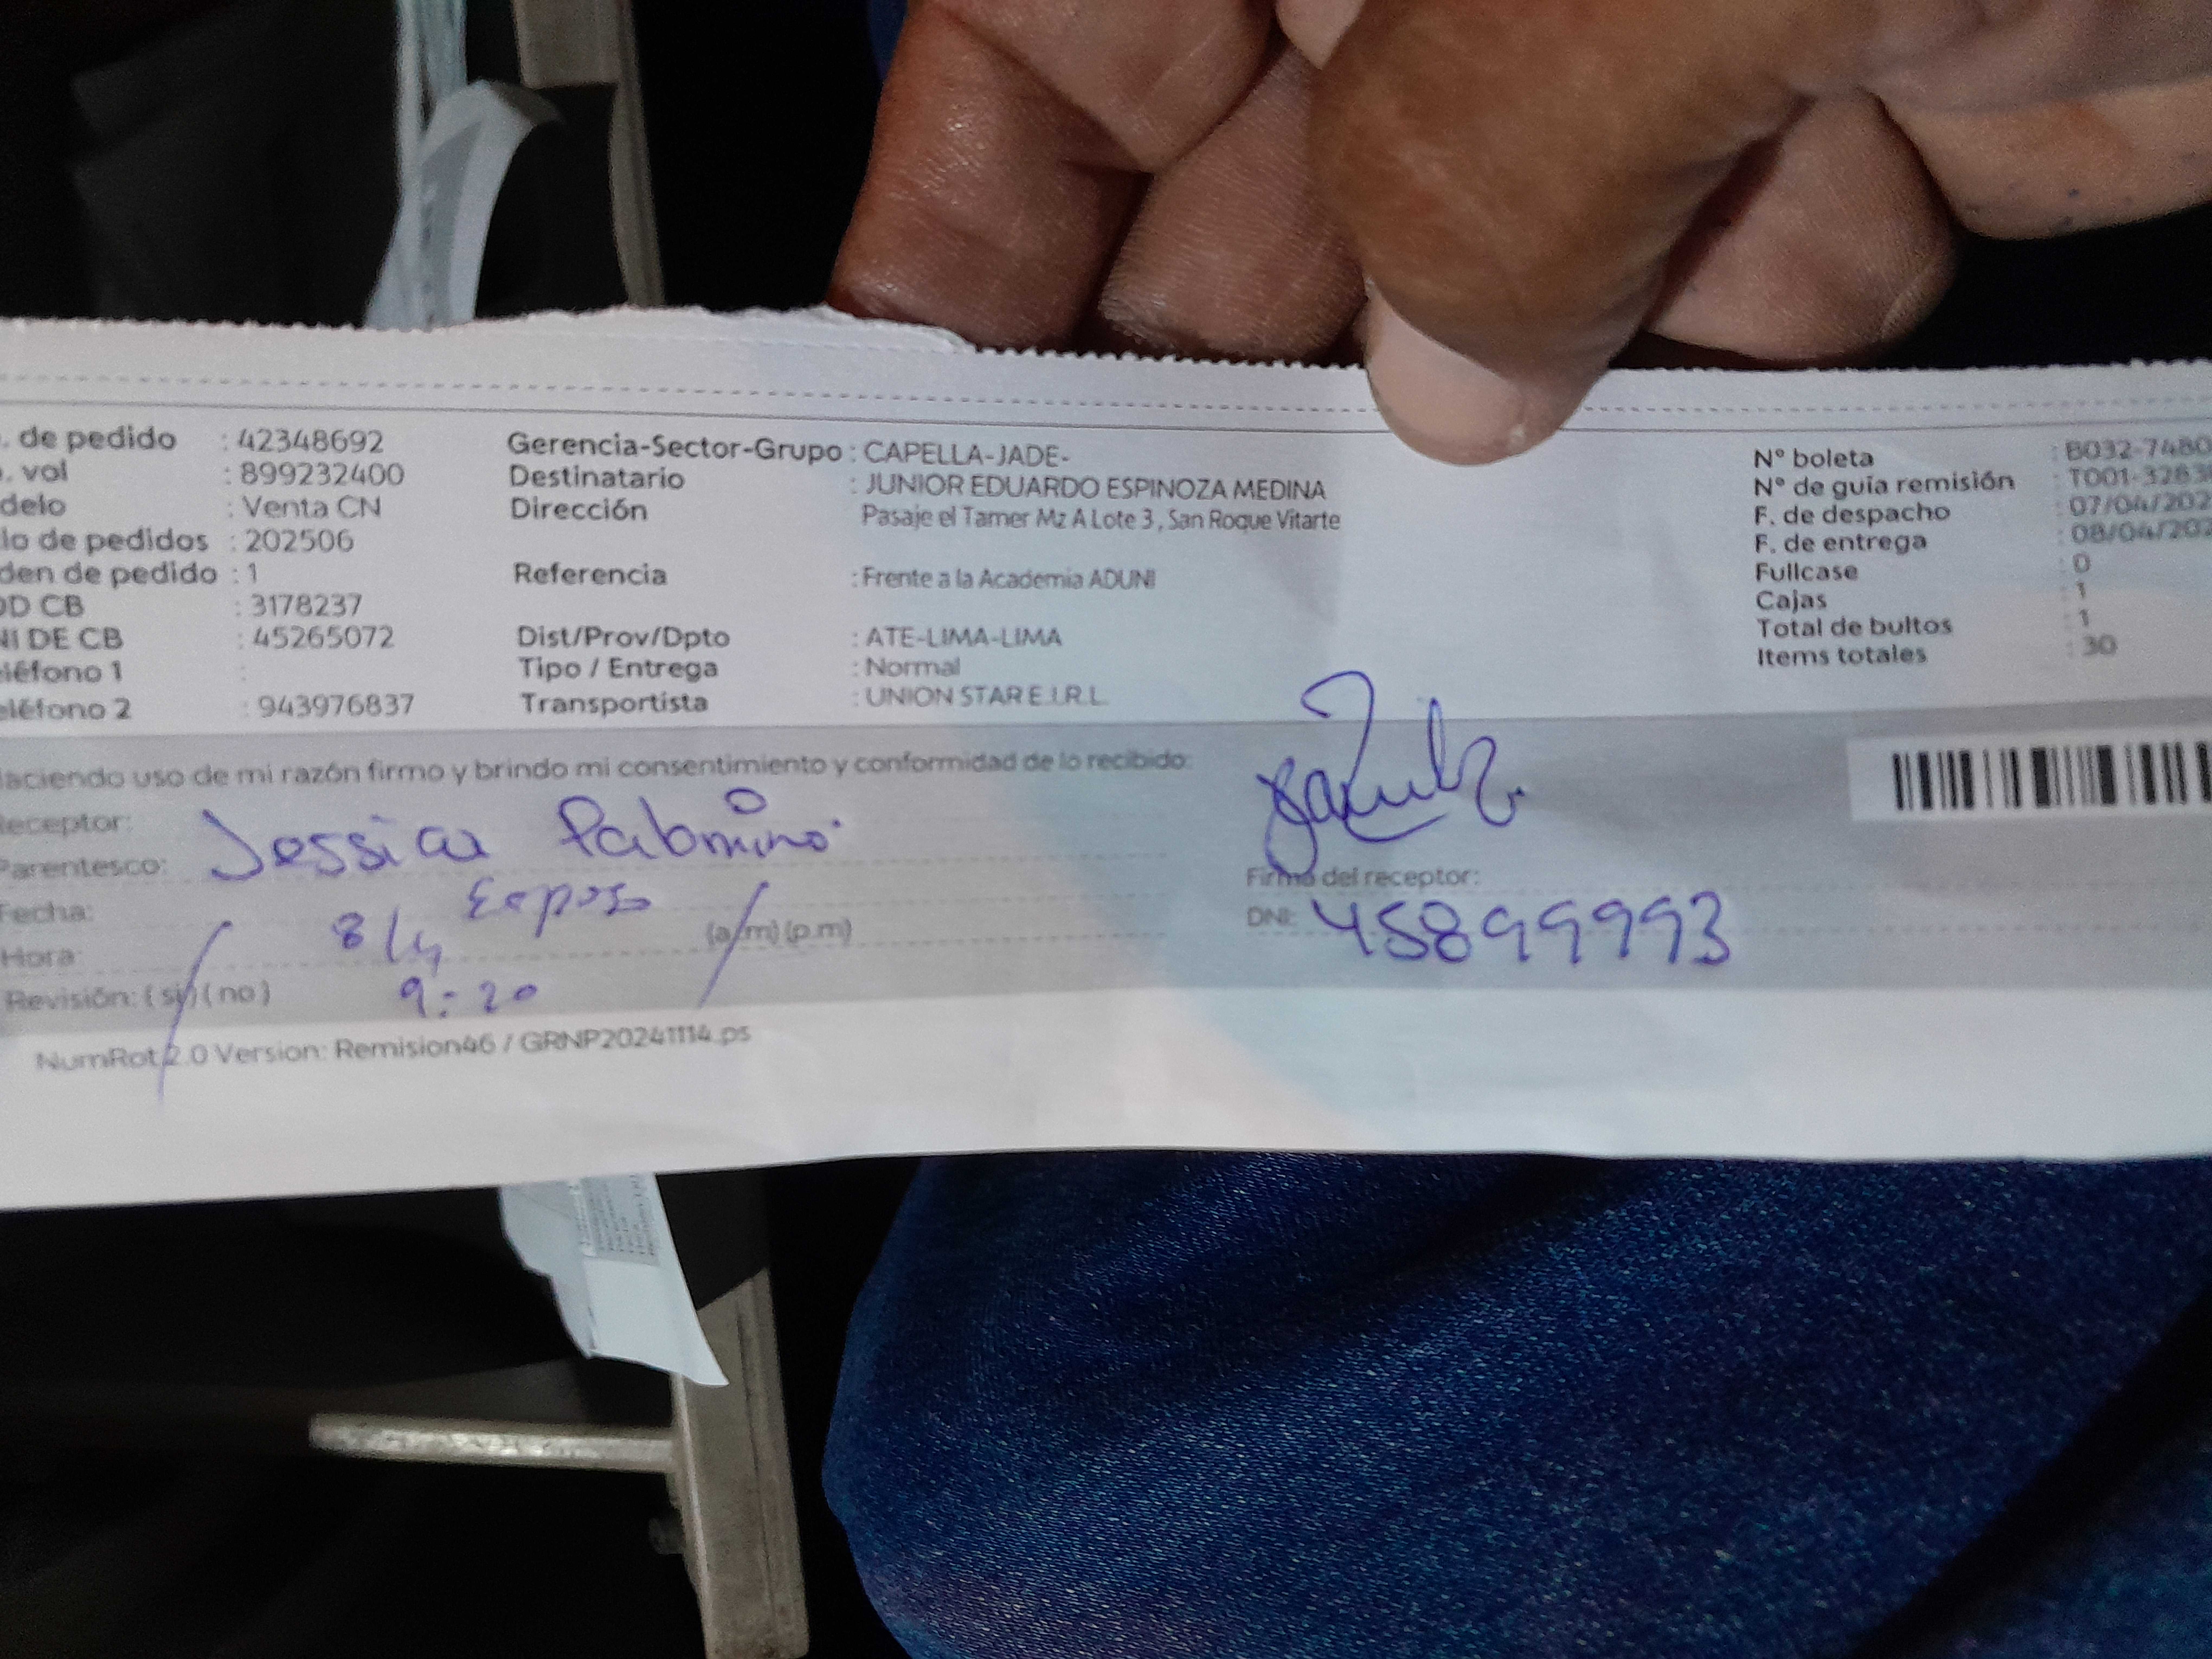 . de pedido : 42348692 Gerencia-Sector-Grupo : CAPELLA-JADE- N° boleta : B032-7480
. vol : 899232400 Destinatario : JUNIOR EDUARDO ESPINOZA MEDINA N° de guía remisión : T001-3283
delo : Venta CN Dirección Pasaje el Tamer Mz A Lote 3, San Roque Vitarte F. de despacho : 07/04/202
lo de pedidos : 202506 F. de entrega : 08/04/202
den de pedido : 1 Referencia : Frente a la Academia ADUNI Fullcase : 0
OD CB : 3178237 Cajas : 1
NI DE CB : 45265072 Dist/Prov/Dpto : ATE-LIMA-LIMA Total de bultos : 1
eléfono 1 : Tipo / Entrega : Normal Items totales : 30
eléfono 2 : 943976837 Transportista : UNION STAR E.I.R.L.
Haciendo uso de mi razón firmo y brindo mi consentimiento y conformidad de lo recibido:
Receptor: Jessica Palomino
Parentesco: Esposo Firma del receptor:
Fecha: 8/4 DNI: 45899993
Hora: 9:20 (a.m) (p.m)
Revisión: (si) (no)
NumRot 2.0 Version: Remision46 / GRNP20241114.ps